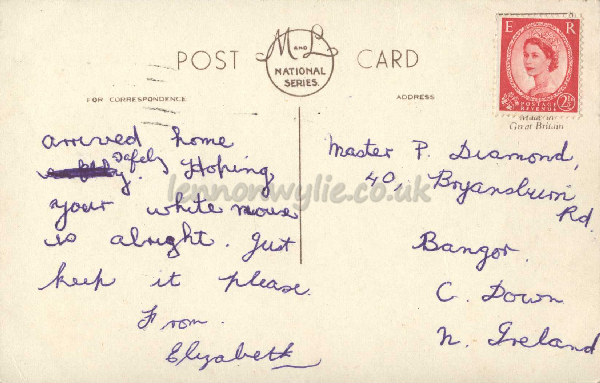 POST CARD
M AND L
NATIONAL
SERIES.
FOR CORRESPONDENCE
ADDRESS
E R
POSTAGE
REVENUE
2½D
Made in
Great Britain
arrived home
safely. Hoping
your white mouse
is alright. Just
keep it please.
From.
Elizabeth
Master P. Diamond,
40, Bryansburn
Rd.
Bangor.
C. Down
N. Ireland
lennonwylie.co.uk